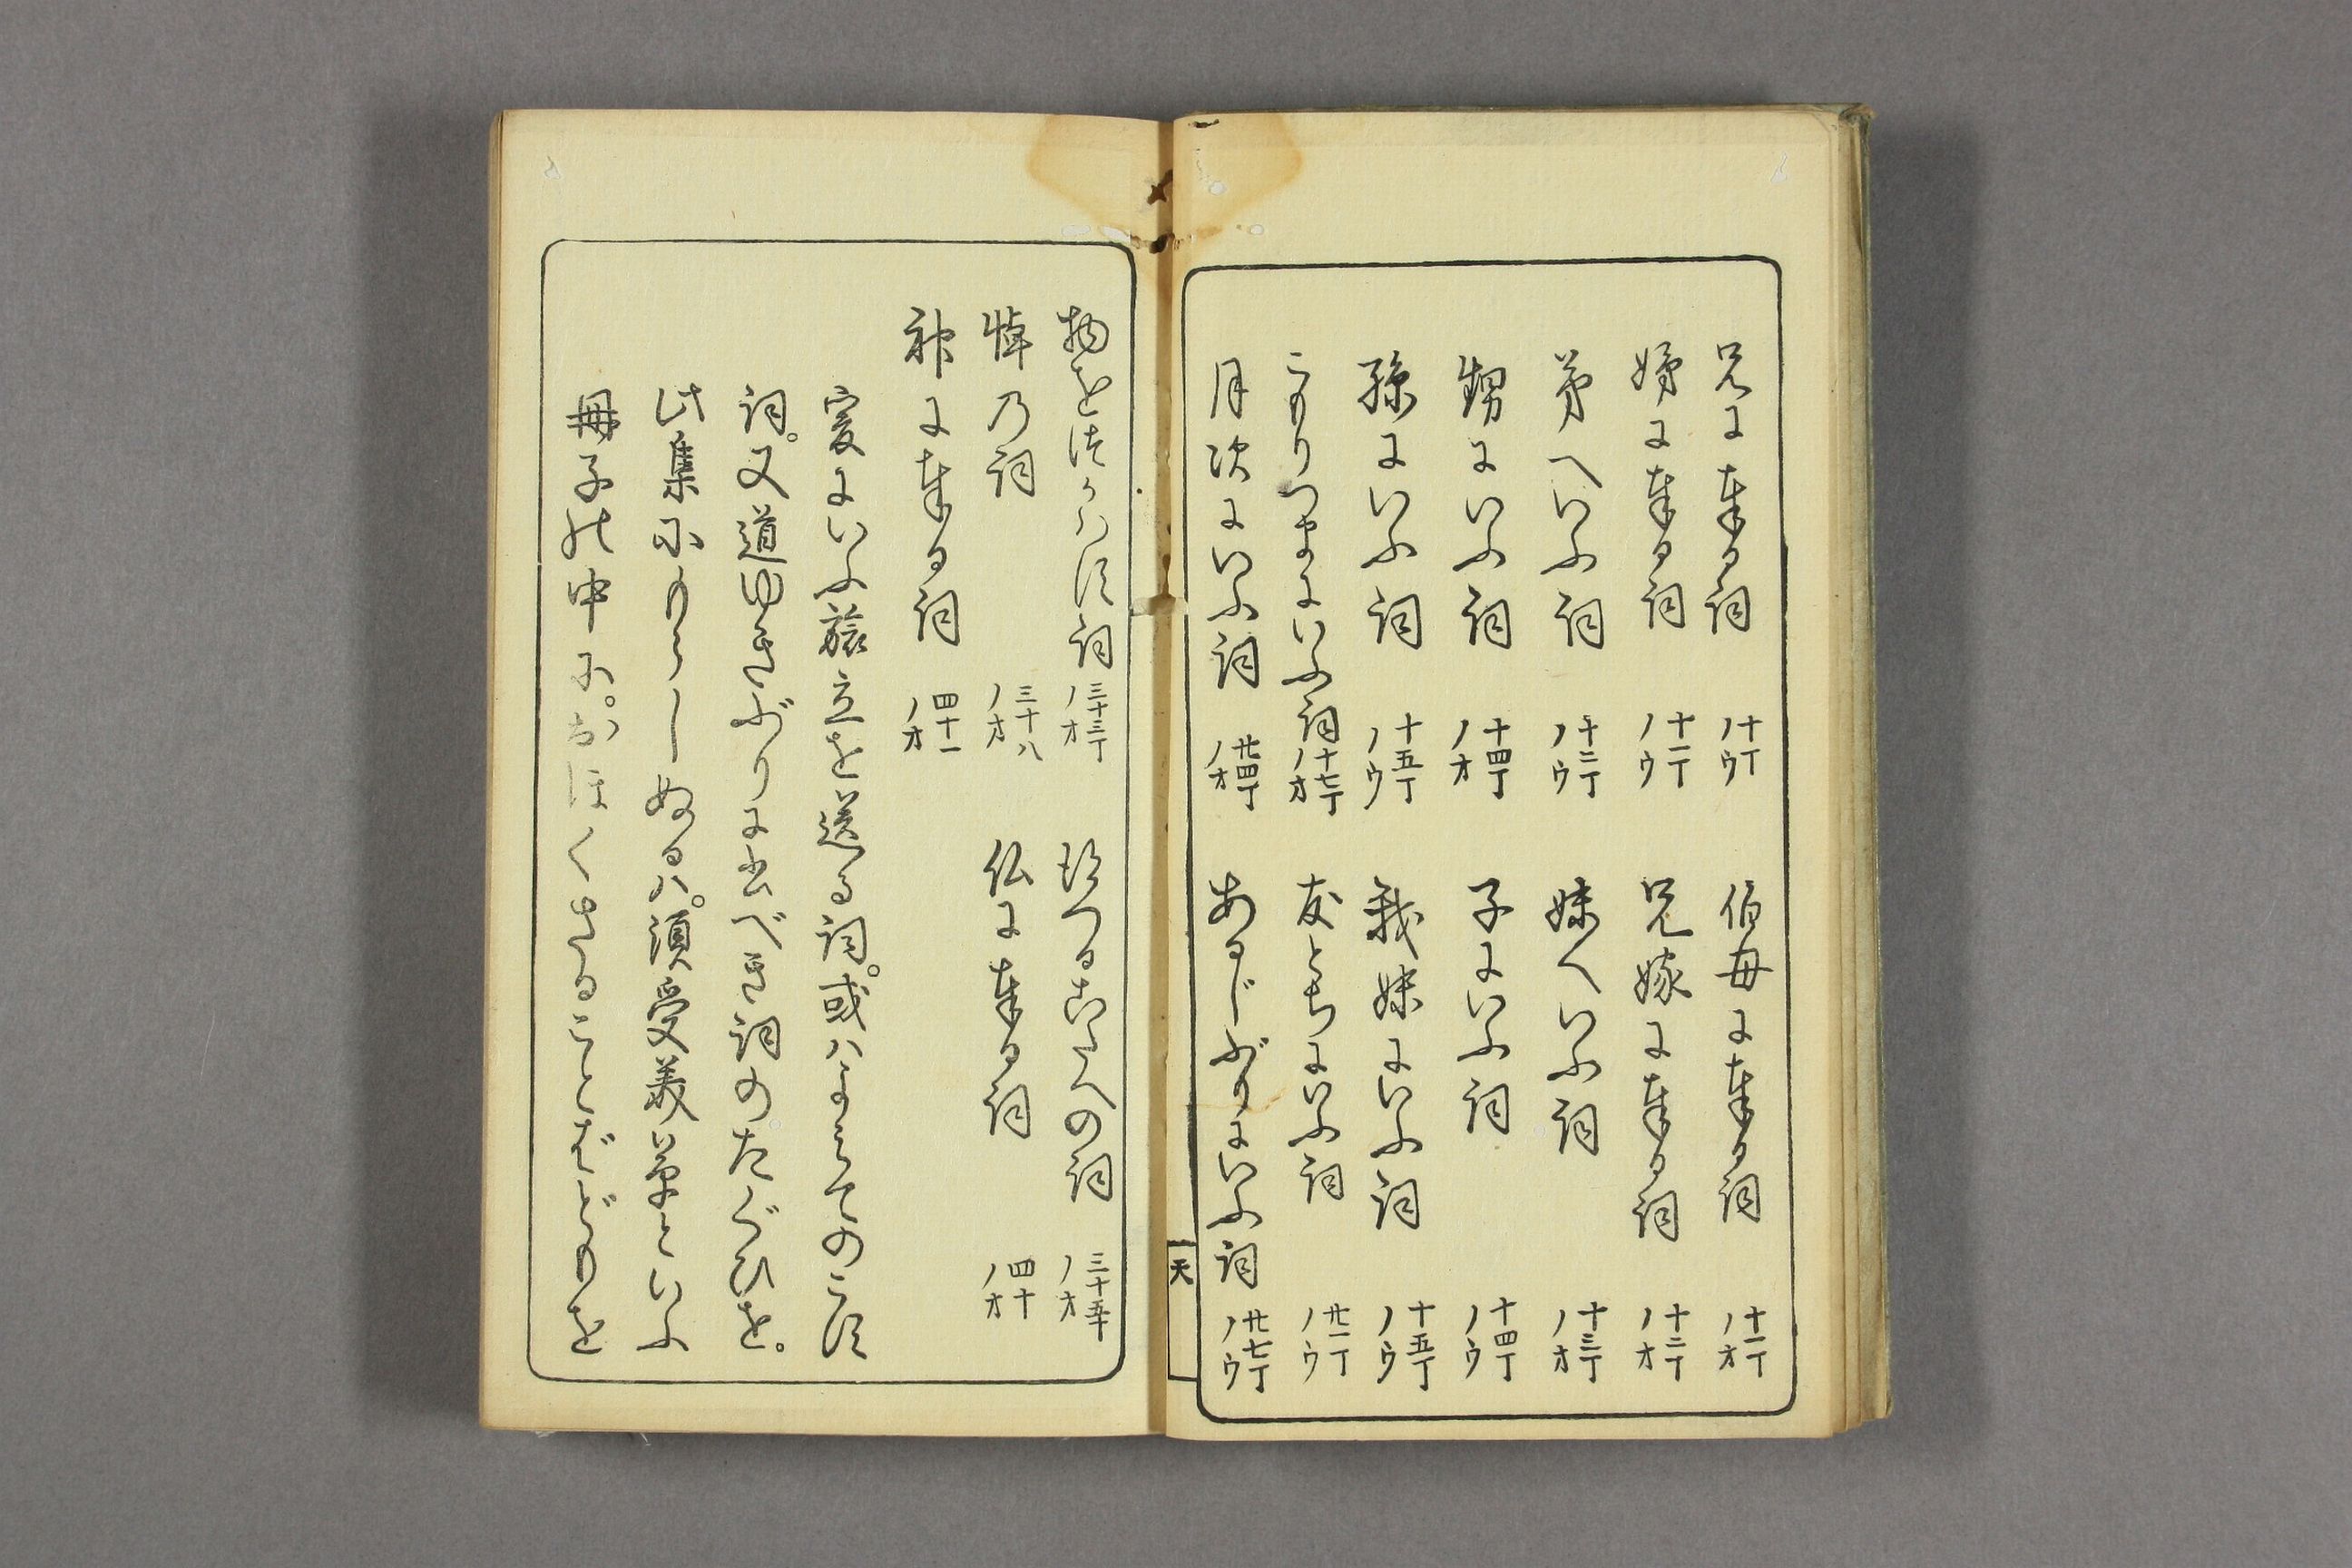 兄に奉る詞 十丁ノウ 伯母に奉る詞 十一丁ノオ
姉に奉る詞 十一丁ノウ 兄嫁に奉る詞 十二丁ノオ
弟へいふ詞 十二丁ノウ 妹へいふ詞 十三丁ノオ
甥にいふ詞 十四丁ノオ 子にいふ詞 十四丁ノウ
孫にいふ詞 十五丁ノウ 我妹にいふ詞 十五丁ノウ
こもりつまにいふ詞 十七丁ノオ 友とちにいふ詞 廿一丁ノウ
月次にいふ詞 廿四丁ノオ あるじぶりにいふ詞 廿七丁ノウ
天
物をつかはす詞 三十三丁ノオ つるこたへの詞 三十五丁ノオ
悼乃詞 三十八ノオ 仏に奉る詞 四十ノオ
神に奉る詞 四十一ノオ
爰にいふ旅立を送る詞。或ハよみてのこす
詞。又道ゆきぶりに出べき詞のたぐひを。
此集にもらしぬるハ。須受美草といふ
冊子の中に。おほくさることばどもを